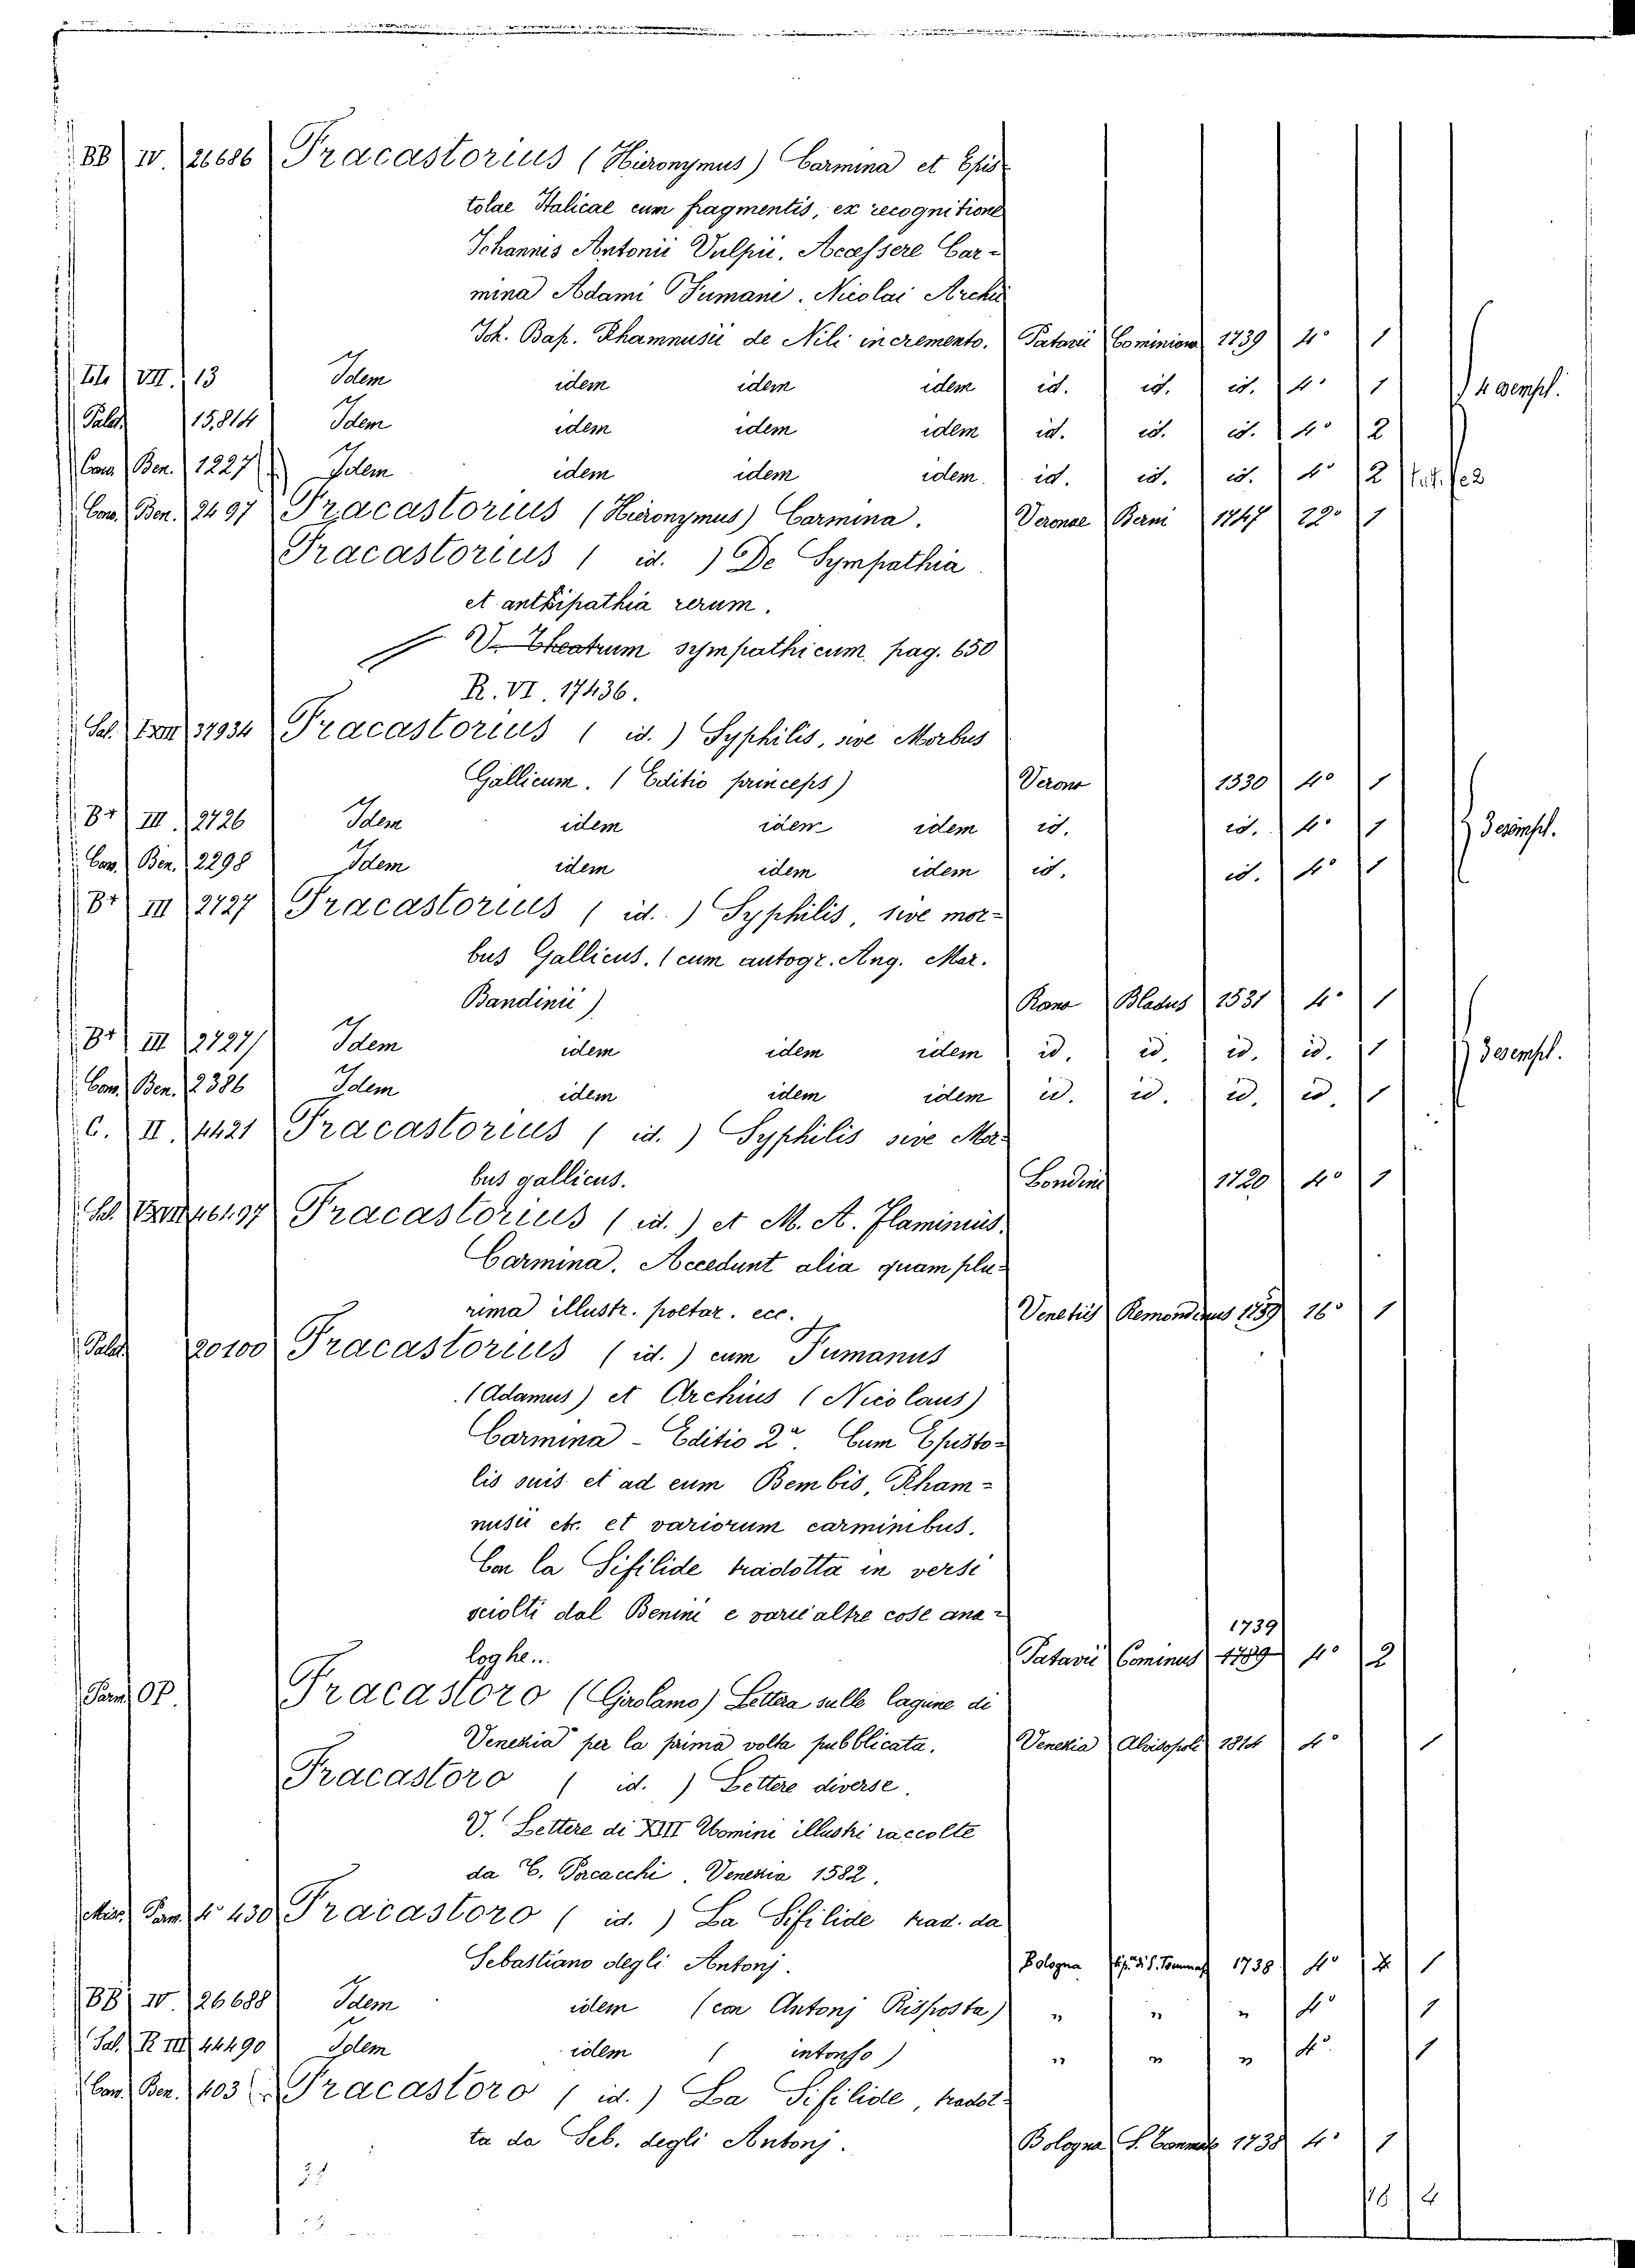 BB IV. 26686 Fracastorius (Hieronymus) Carmina et Epis
tolae Italicae cum fragmentis, ex recognitione
Johannis Antonii Vulpii. Accessere Car-
mina Adami Fumani. Nicolai Archii
Joh. Bap. Rhamnusii de Nili incremento. Patavii Cominiana 1739 4° 1
VII. 13 Idem idem idem idem id. id. id. 4° 1 4 esempl.
Palat. 15,814 Idem idem idem idem id. id. id. 4° 2
Cons. Ben. 1227 Idem idem idem idem id. id. id. 4° 2
Cons. Ben. 2497 Fracastorius (Hieronymus) Carmina. Veronae Berni 1747 22° 1
Fracastorius ( id. ) De Sympathia
et anthipathia rerum.
V. Theatrum sympathicum pag. 650
R. VI. 17436.
Sal. 37934 Fracastorius ( id. ) Syphilis, sive Morbus
Gallicum. (Editio princeps) Verona 1530 4° 1
B+ III. 2726 Idem idem idem idem id. id. 4° 1 3 esempl.
Cons. Ben. 2298 Idem idem idem idem id. id. 4° 1
B+ III 2727 Fracastorius ( id. ) Syphilis, sive mor-
bus Gallicus. (cum autogr. Ang. Mar.
Bandinii) Roma Bladus 1531 4° 1
B+ III 2727/ Idem idem idem idem id. id. id. id. 1 3 esempl.
Cons. Ben. 2386 Idem idem idem idem id. id. id. id. 1
C. II. 4421 Fracastorius ( id. ) Syphilis sive Mor-
bus gallicus. Londini 1720 4° 1
Sal. Fracastorius (id.) et M. A. Flaminius.
Carmina. Accedunt alia quam plu-
rima illustr. poetar. ecc. Venetiis Remondinus 1759 16° 1
Palat. 20100 Fracastorius (id.) cum Fumanus
(Adamus) et Archius (Nicolaus)
Carmina - Editio 2a. Cum Episto-
lis suis et ad eum Bembis, Rham-
nusii etc. et variorum carminibus.
Con la Sifilide tradotta in versi
sciolti dal Benini e varie altre cose ana-
1739
loghe... Patavii Cominus 1789 4° 2
Pam. OP. Fracastoro (Girolamo) Lettera sulle lagune di
Venezia per la prima volta pubblicata. Venezia Alvisopoli 1814 4° 1
Fracastoro ( id. ) Lettere diverse.
V. Lettere di XIII Uomini illustri raccolte
da C. Porcacchi. Venezia 1582.
Misc. Pam. 4° 430 Fracastoro ( id. ) La Sifilide trad. da
Sebastiano degli Antonj. Bologna 1738 4° 1
BB IV. 26688 Idem idem (con Antonj Risposta) " " " 4° 1
Sal. R III 44490 Idem idem ( intonso) " " " 4° 1
Cons. Ben. 403 Fracastoro (id.) La Sifilide, tradot-
ta da Seb. degli Antonj. Bologna 1738 4° 1
31
18 4